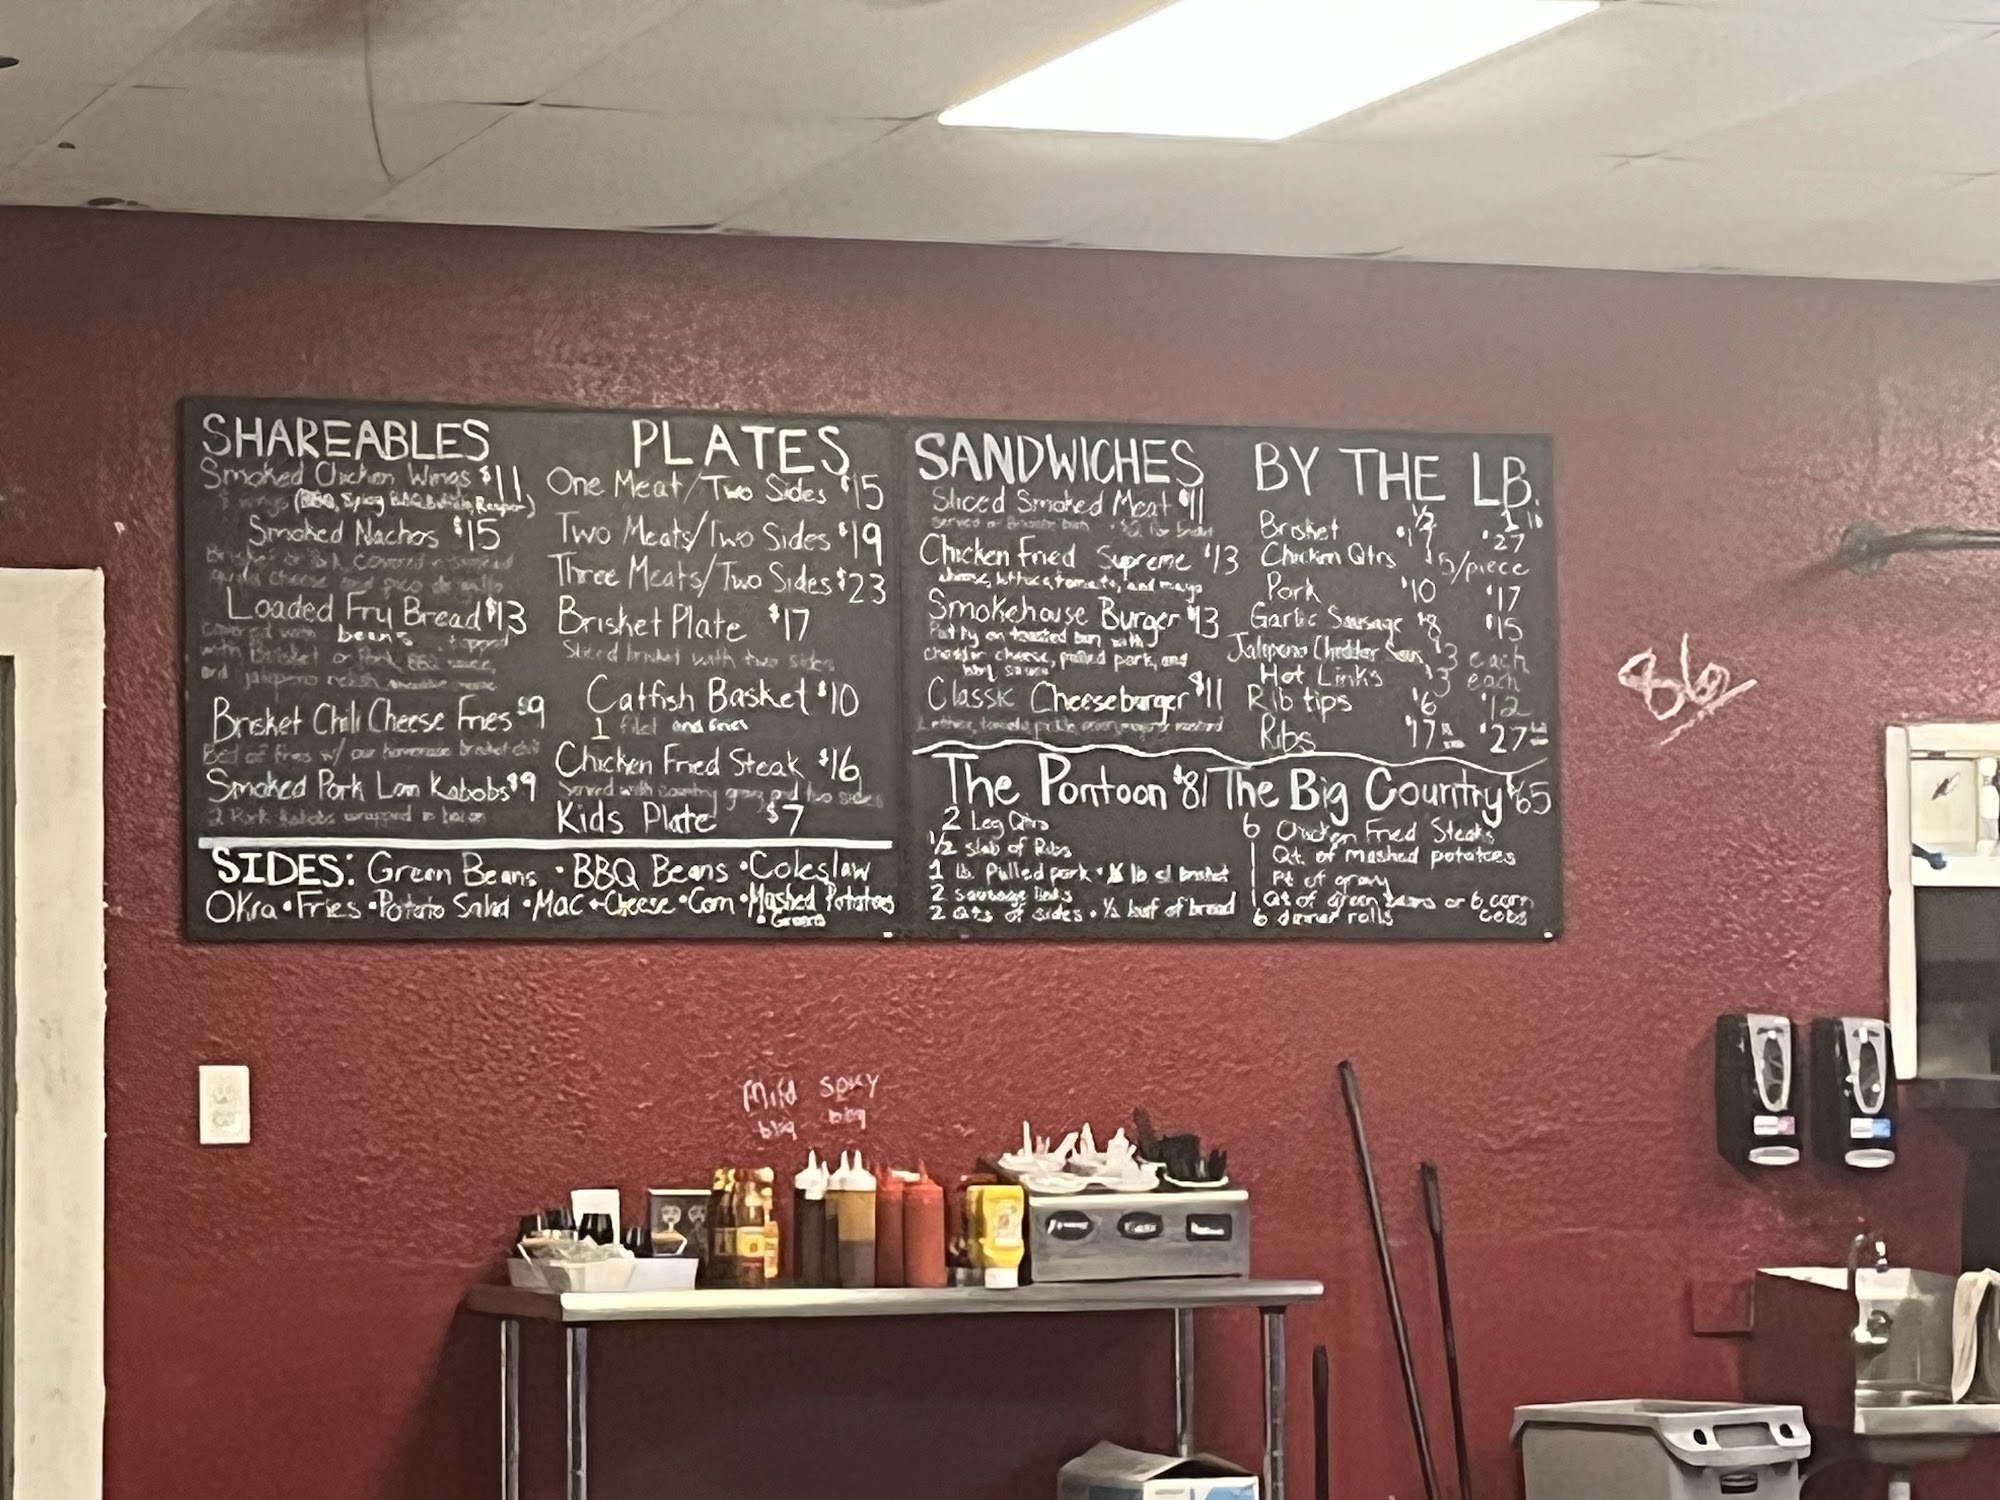 SHAREABLES
Smoked Chicken Wings $11
wings (BBQ, Spicy BBQ, Buffalo,
Smoked Nachos $15
Brisket or covered
queso cheese and pico de gallo
Loaded Fry Bread $13
covered with beans topped
with Brisket or Pork, BBQ sauce
and jalapeno relish
Brisket Chili Cheese Fries $9
Bed of fries w/ our homemade brisket chili
Smoked Pork Loin Kabobs $9
2 Pork Kabobs wrapped in bacon
PLATES
One Meat/Two Sides $15
Two Meats/Two Sides $19
Three Meats/Two Sides $23
Brisket Plate $17
Sliced brisket with two sides
Catfish Basket $10
1 filet and fries
Chicken Fried Steak $16
Served with country gravy and two sides
Kids Plate $7
SIDES: Green Beans • BBQ Beans • Coleslaw
Okra • Fries • Potato Salad • Mac + Cheese • Corn • Mashed Potatoes
SANDWICHES
Sliced Smoked Meat $11
served on bun +$2 for brisket
Chicken Fried Supreme $13
cheese, lettuce, tomato, and mayo
Smokehouse Burger $13
Patty on toasted bun with
cheddar cheese, pulled pork, and
bbq sauce
Classic Cheeseburger $11
Lettuce, tomato, pickle, onion, mayo or mustard
BY THE LB.
1/2 1 lb
Brisket $17 $27
Chicken Qtrs $5/piece
Pork $10 $17
Garlic Sausage $8 $15
Jalapeno Cheddar Saus. $3 each
Hot Links $3 each
Rib tips $6 $12
Ribs $17 $27
The Pontoon $81
2 Leg Qtrs
1/2 slab of Ribs
1 lb. Pulled pork • lb of brisket
2 sausage links
2 qts of sides • 1/2 loaf of bread
The Big Country $65
6 Chicken Fried Steaks
1 Qt. of mashed potatoes
Pt of gravy
1 Qt of green beans or 6 corn
cobs
6 dinner rolls
86
Mild Spicy
bbq bbq